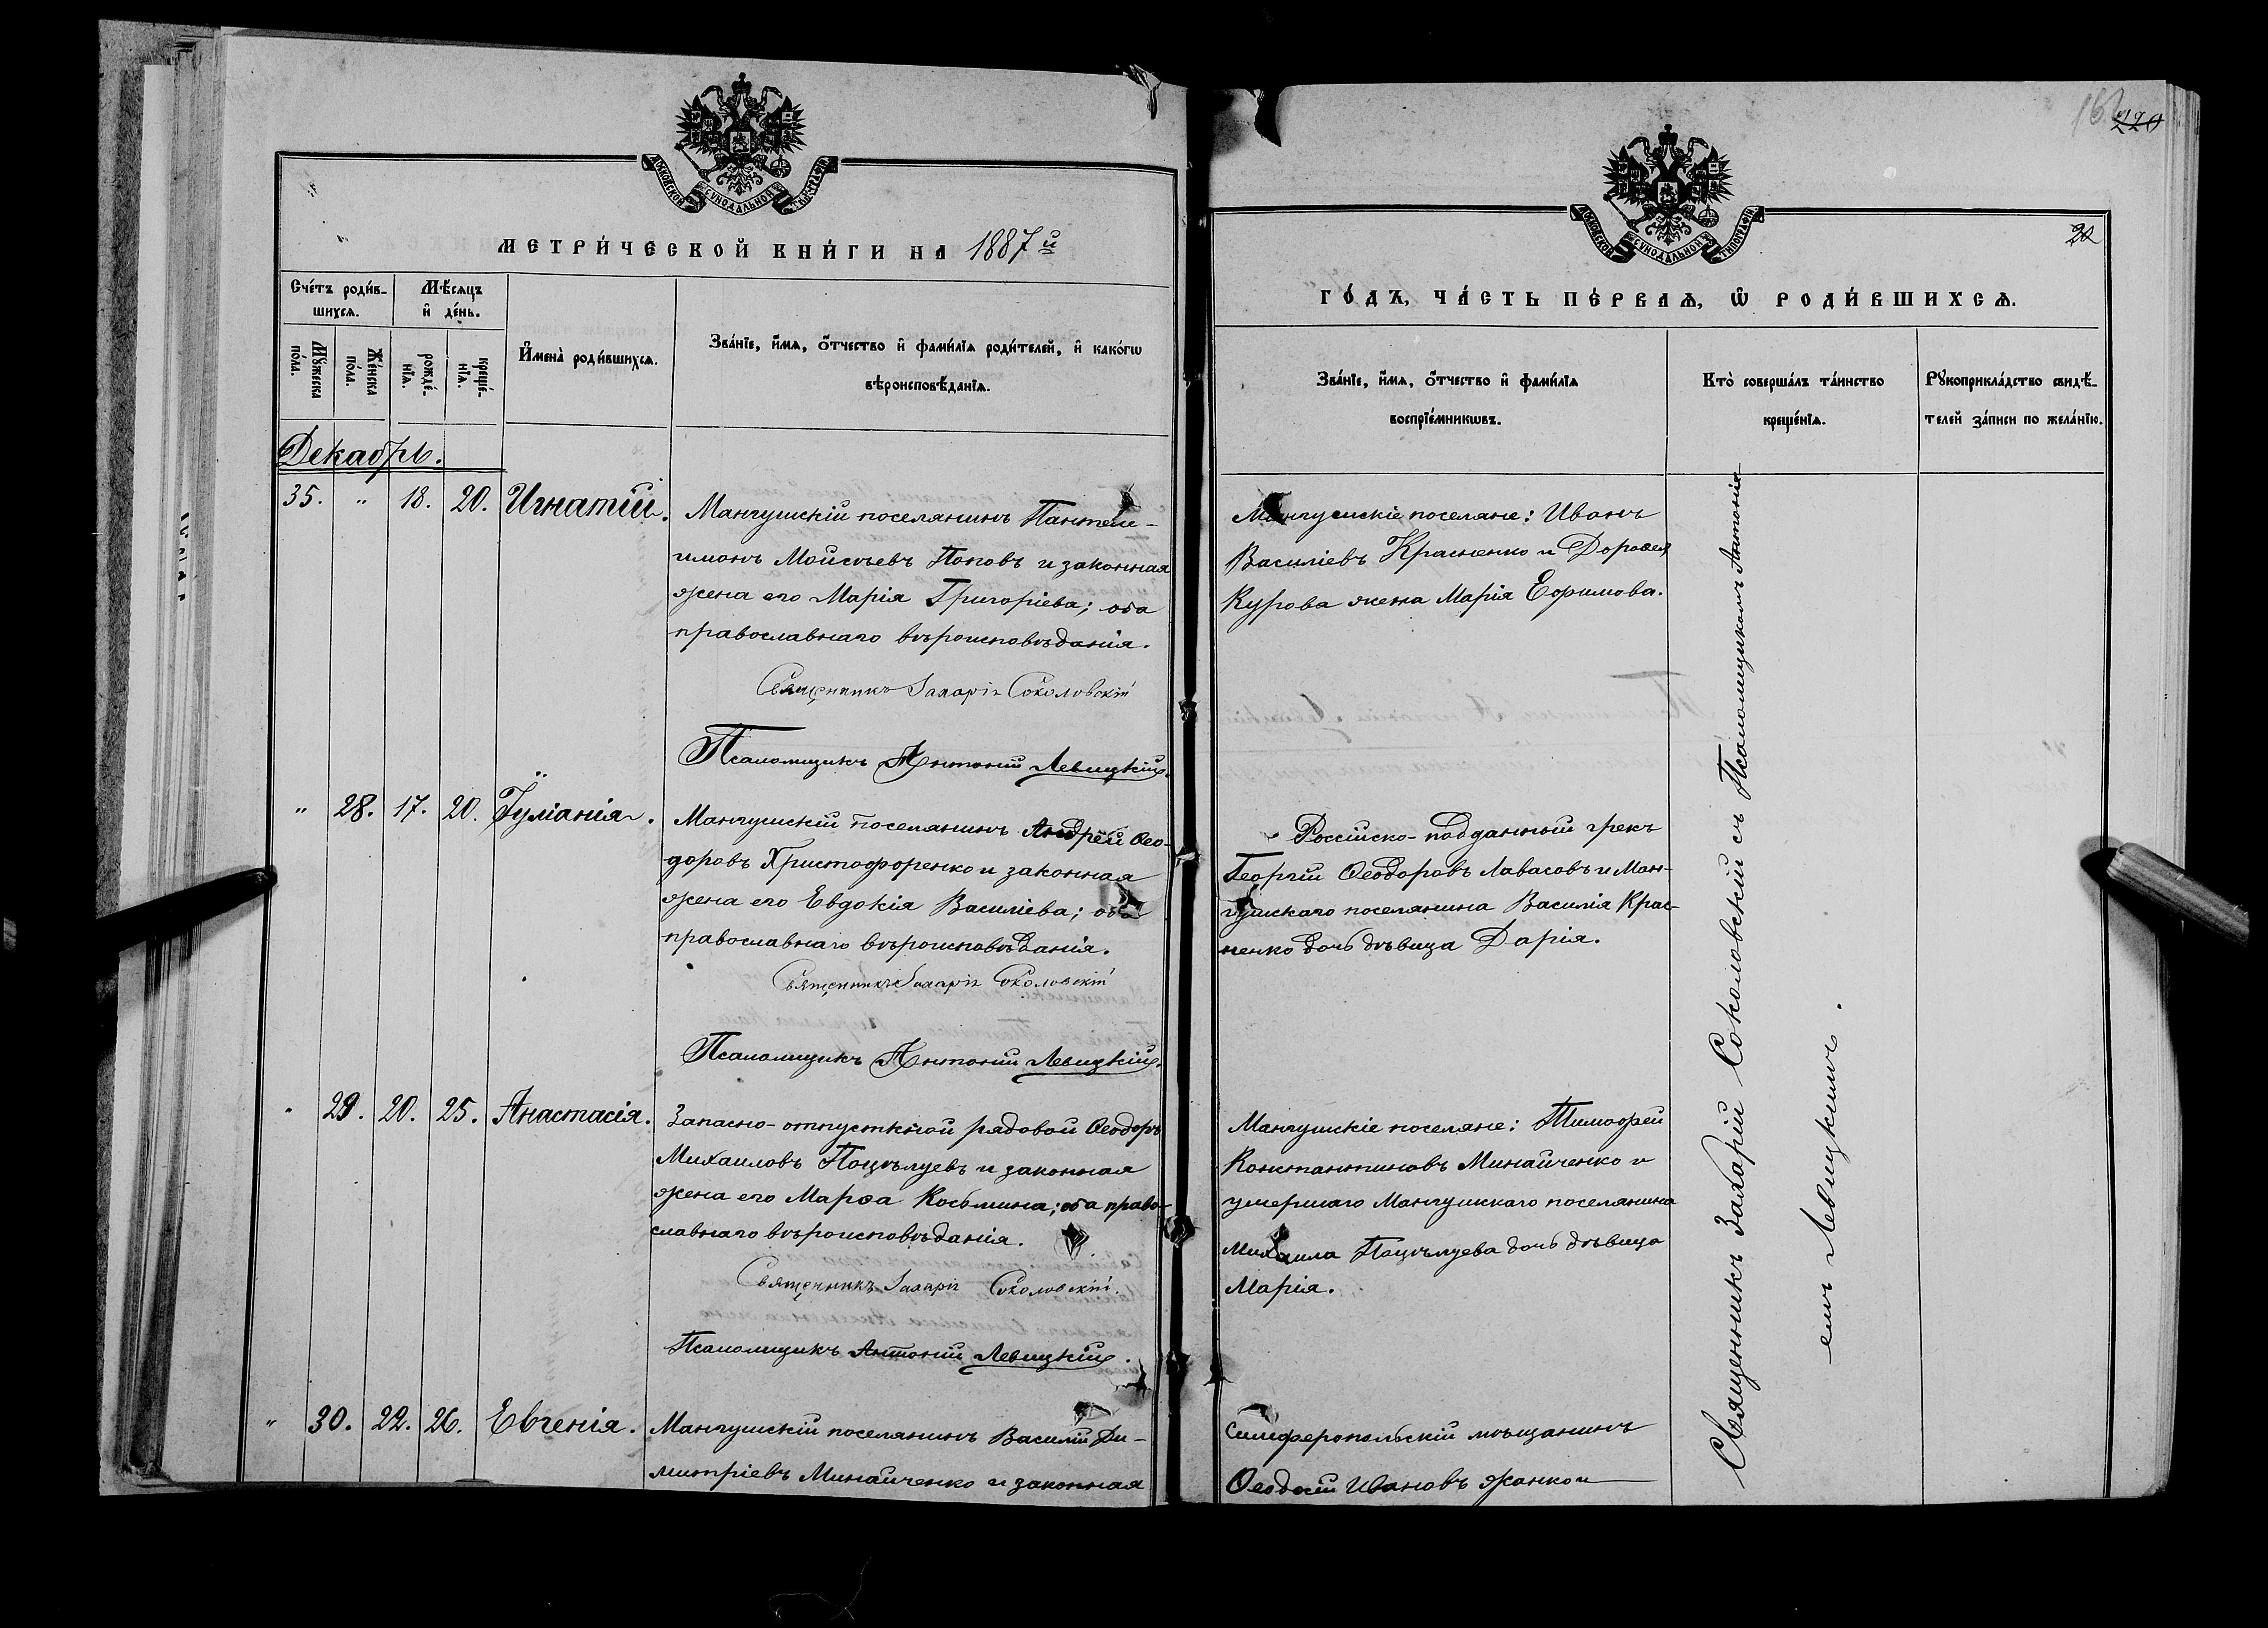 МОСКОВСКОЙ СѴНОДАЛЬНОЙ ТИПОГРАФІИ
МЕТРИ́ЧЕСКОЙ КНИ́ГИ НА 1887й
Сче́тъ роди́в-
шихсѧ.
Мѣ́сѧцъ
и҆ де́нь.
Мꙋ́жеска
по́ла.
Же́нска
по́ла.
рожде́-
нїѧ.
креще́-
нїѧ.
И҆мена̀ роди́вшихсѧ.
Зва́нїе, и҆́мѧ, ѻ҆́тчество и҆ фами́лїѧ роди́телей, и҆ како́гѡ
вѣроисповѣ́данїѧ.
Декабрь.
35. " 18. 20. Игнатій.
Мангушскій поселянинъ Пантеле-
имонъ Моисѣевъ Поповъ и законная
жена его Марія Григоріева; оба
православнаго вѣроисповѣданія.
Священникъ Захарій Соколовскій
Псаломщикъ Антоній Левицкій.
" 28. 17. 20. Іуліанія.
Мангушскій поселянинъ Андрей Ѳео-
доровъ Христофоренко и законная
жена его Евдокія Василіева; оба
православнаго вѣроисповѣданія.
Священникъ Захарій Соколовскій
Псаломщикъ Антоній Левицкій.
" 29. 20. 25. Анастасія.
Запасно-отпускной рядовой Ѳеодоръ
Михаиловъ Поцѣлуевъ и законная
жена его Марѳа Косьмина; оба право-
славнаго вѣроисповѣданія.
Священникъ Захарій Соколовскій.
Псаломщикъ Антоній Левицкій.
" 30. 22. 26. Евгенія.
Мангушскій поселянинъ Василій Ди-
митріевъ Минайченко и законная
220
МОСКОВСКОЙ СѴНОДАЛЬНОЙ ТИПОГРАФІИ
ГО́ДЪ, ЧА́СТЬ ПЕ́РВАѦ, Ѡ҆ РОДИ́ВШИХСѦ.
Зва́нїе, и҆́мѧ, ѻ҆́тчество и҆ фами́лїѧ
воспрїе́мникѡвъ.
Кто̀ соверша́лъ та́инство
креще́нїѧ.
Рꙋкоприкла́дство свидѣ́-
телей за́писи по жела́нїю.
Мангушскіе поселяне: Иванъ
Василіевъ Красненко и Дороѳея
Курова жена Марія Ефимова.
Россійско-подданный грекъ
Георгій Ѳеодоровъ Лавасовъ и Ман-
гушскаго поселянина Василія Крас-
ненко дочь дѣвица Дарія.
Мангушскіе поселяне: Тимофей
Константиновъ Минайченко и
умершаго Мангушскаго поселянина
Михаила Поцѣлуева дочь дѣвица
Марія.
Симферопольскій мѣщанинъ
Ѳеодосій Ивановъ Жанкои
Священникъ Захарій Соколовскій съ Псаломщикомъ Антоні-
емъ Левицкимъ.